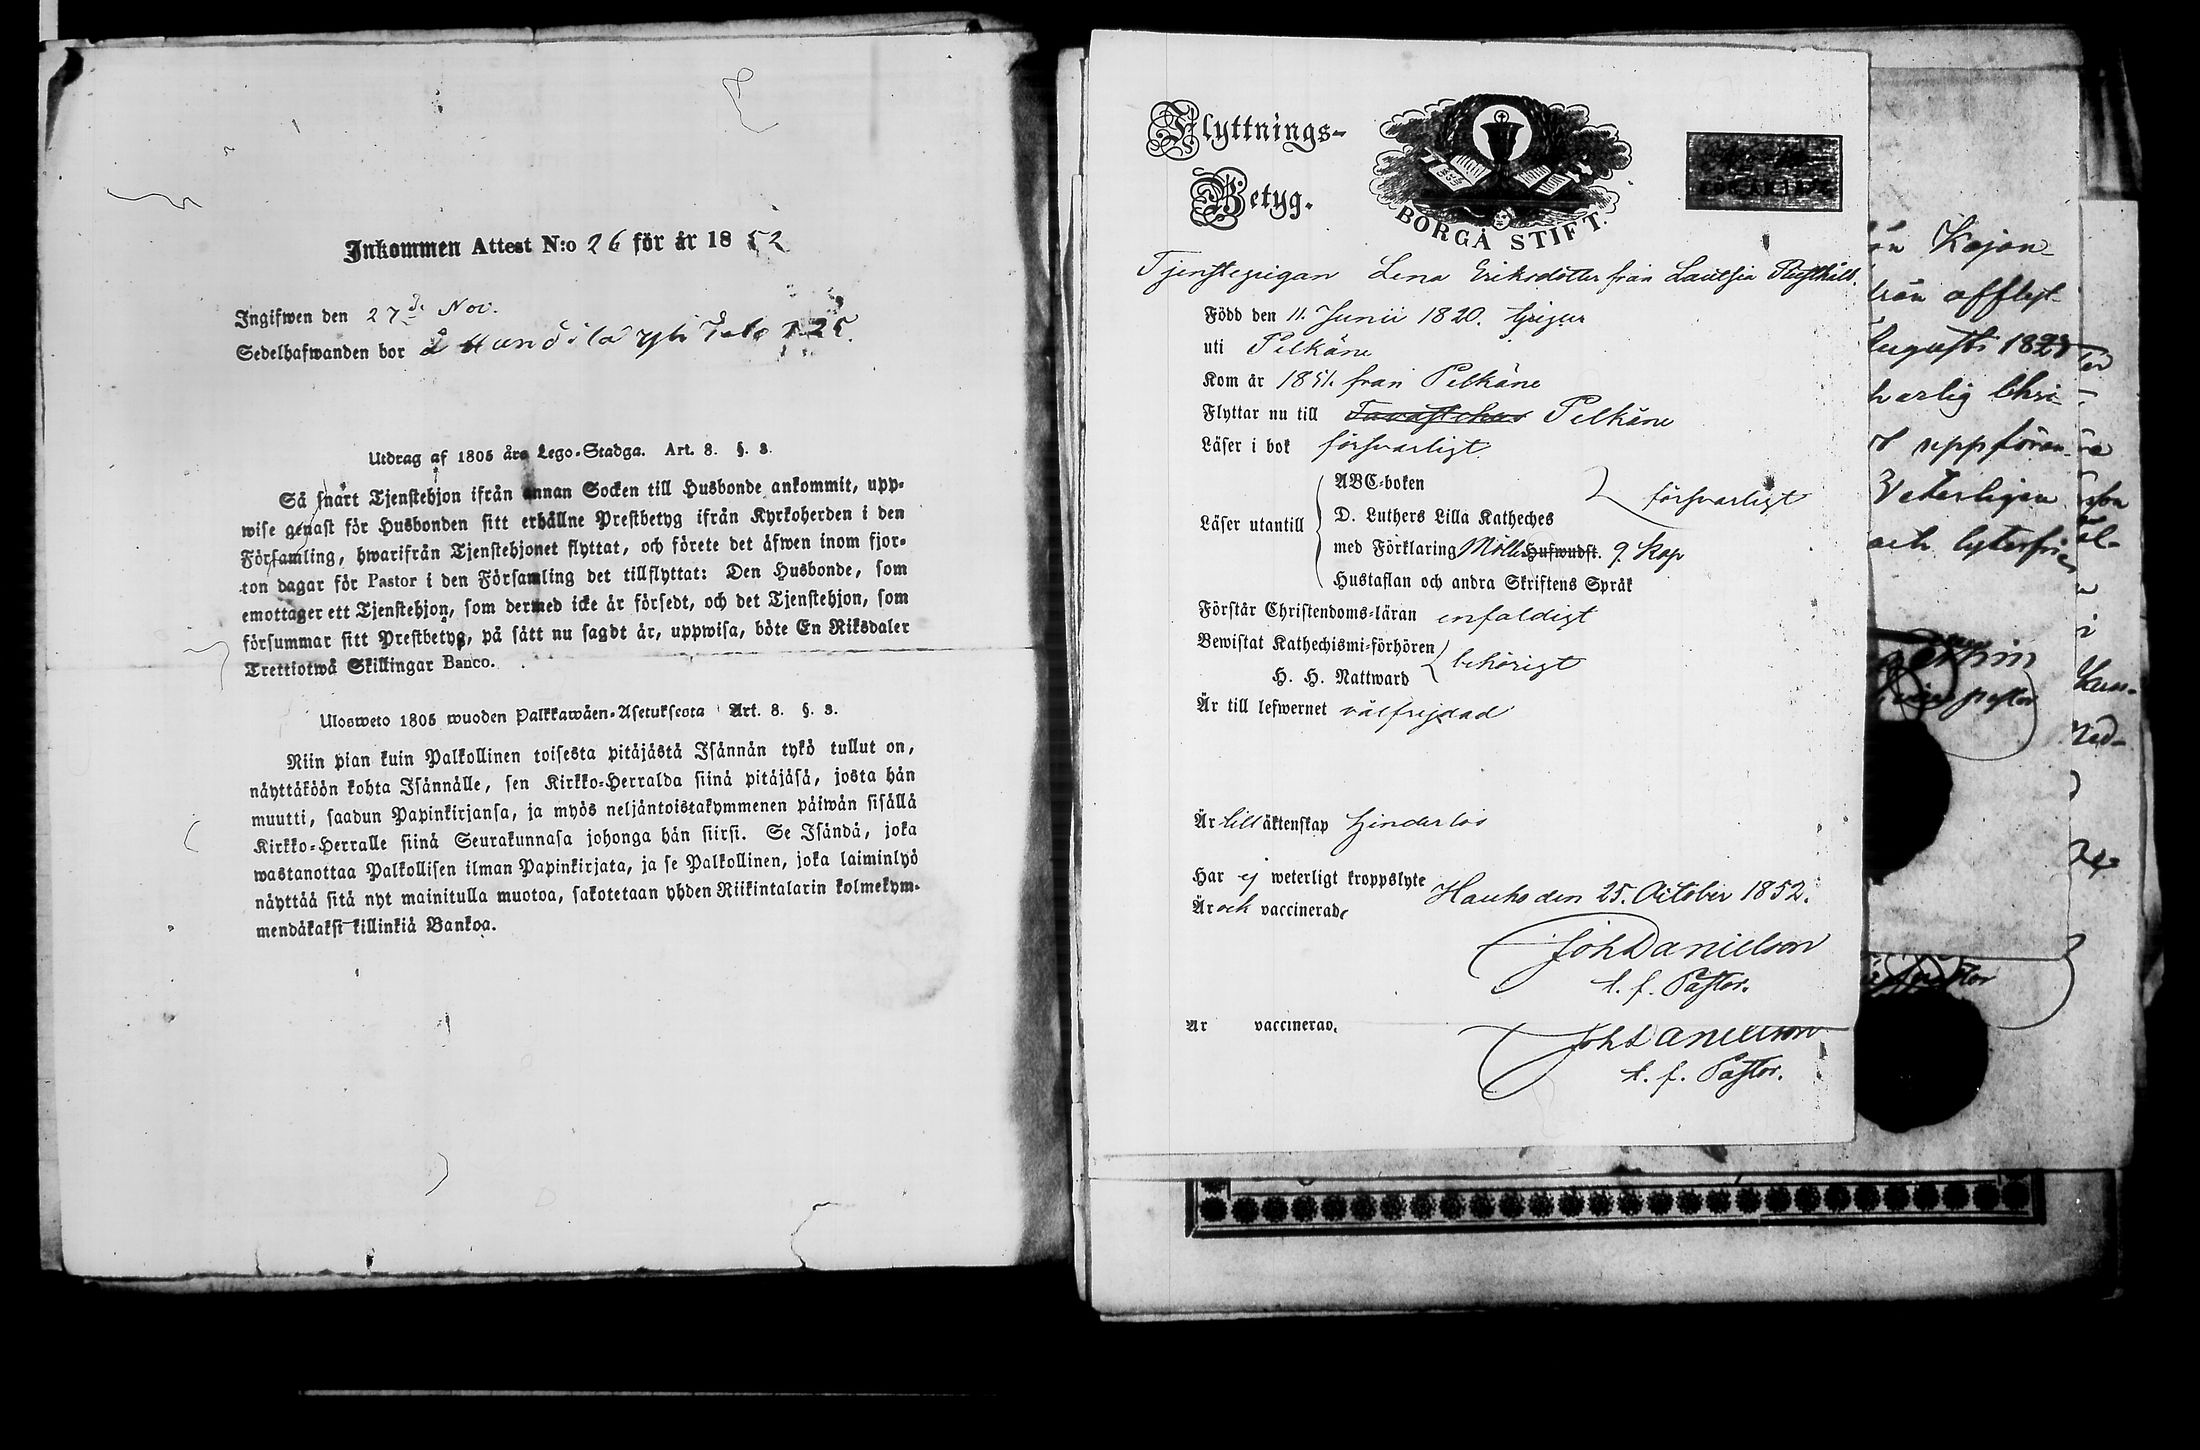 Inkommen Attest N:o 26 för år 1852
Ingifwen den 27de Nov.
Sedelhafwanden bor å
Utdrag af 1805 års Lego-Stadga. Art. 8. §. 3.
Så snart Tjenstehjon ifrån annan Socken till Husbonde ankommit, upp-
wise genast för Husbonden sitt erhållne Prestbetyg ifrån Kyrkoherden i den
Församling, hwarifrån Tjenstehjonet flyttat, och förete det äfwen inom fjor-
ton dagar för Pastor i den Församling det tillflyttat: Den Husbonde, som
emottager ett Tjenstehjon, som dermed icke är försedt, och det Tjenstehjon, som
försummar sitt Prestbetyg, på sätt nu sagdt är, uppwisa, böte En Riksdaler
Trettiotwå Skillingar Banco.
Ulosweto 1805 wuoden Palkkawäen-Asetuksesta Art. 8. §. 3.
Niin pian kuin Palkollinen toisesta pitäjästä Isännän tykö tullut on,
näyttäköön kohta Isännälle, sen Kirkko-Herralda siinä pitäjäsä, josta hän
muutti, saadun Papinkirjansa, ja myös neljäntoistakymmenen päiwän sisällä
Kirkko-Herralle siinä Seurakunnasa johonga hän siirsi. Se Isändä, joka
wastanottaa Palkollisen ilman Papinkirjata, ja se Palkollinen, joka laiminlyö
näyttää sitä nyt mainitulla muotoa, sakotetaan yhden Riikintalarin kolmekym-
mendäkaksi killinkiä Bankoa.
Flyttnings-
Betyg.
BORGÅ STIFT.
Tjenstepigan Lena Eriksdotter från Lautsia Rusthåll.
Född den 11. Junii 1820.
uti Pelkäne
Kom år 1851. från Pelkäne
Flyttar nu till Tavastehus Pelkäne
Läser i bok försvarligt
Läser utantill
ABC-boken
D. Luthers Lilla Katheches
med Förklaring Möll. Hufwudst. 9. Kap
Hustaflan och andra Skriftens Språk
försvarligt
Förstår Christendoms-läran enfaldigt
Bewistat Kathechismi-förhören
H. H. Nattward
behörigt
Är till lefwernet välfrejdad
Är till äktenskap hinderlös
Har ej weterligt kroppslyte
Är ock vaccinerad
Hauho den 25. October 1852.
Joh Danielson
t. f. Pastor.
Är vaccinerad.
Joh Danielson
t. f. Pastor.
Kajan-
afflyt-
Augusti 182
varlig Chri-
uppföran-
Veterligen
och lytesfri